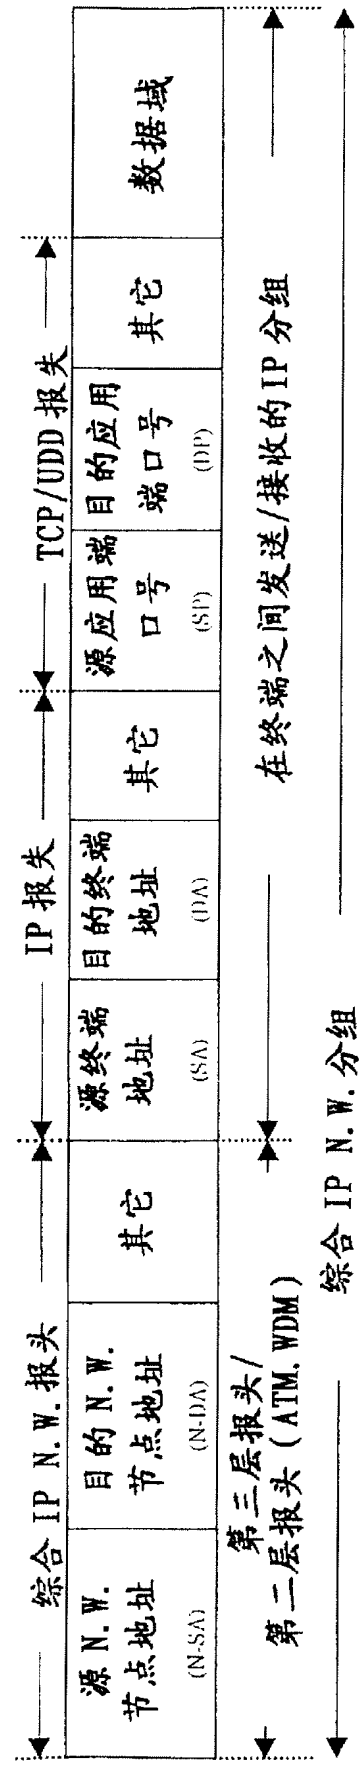 综合 IP N.W.报头
IP 报失
TCP/UDD 报失
源 N.W.
节点地址
(N-SA)
目的 N.W.
节点地址
(N-DA)
其它
源终端
地址
(SA)
目的终端
地址
(DA)
其它
源应用端
口号
(SP)
目的应用
端口号
(DP)
其它
数据域
第三层报头/
第二层报头(ATM.WDM)
在终端之间发送/接收的IP 分组
综合 IP N.W.分组